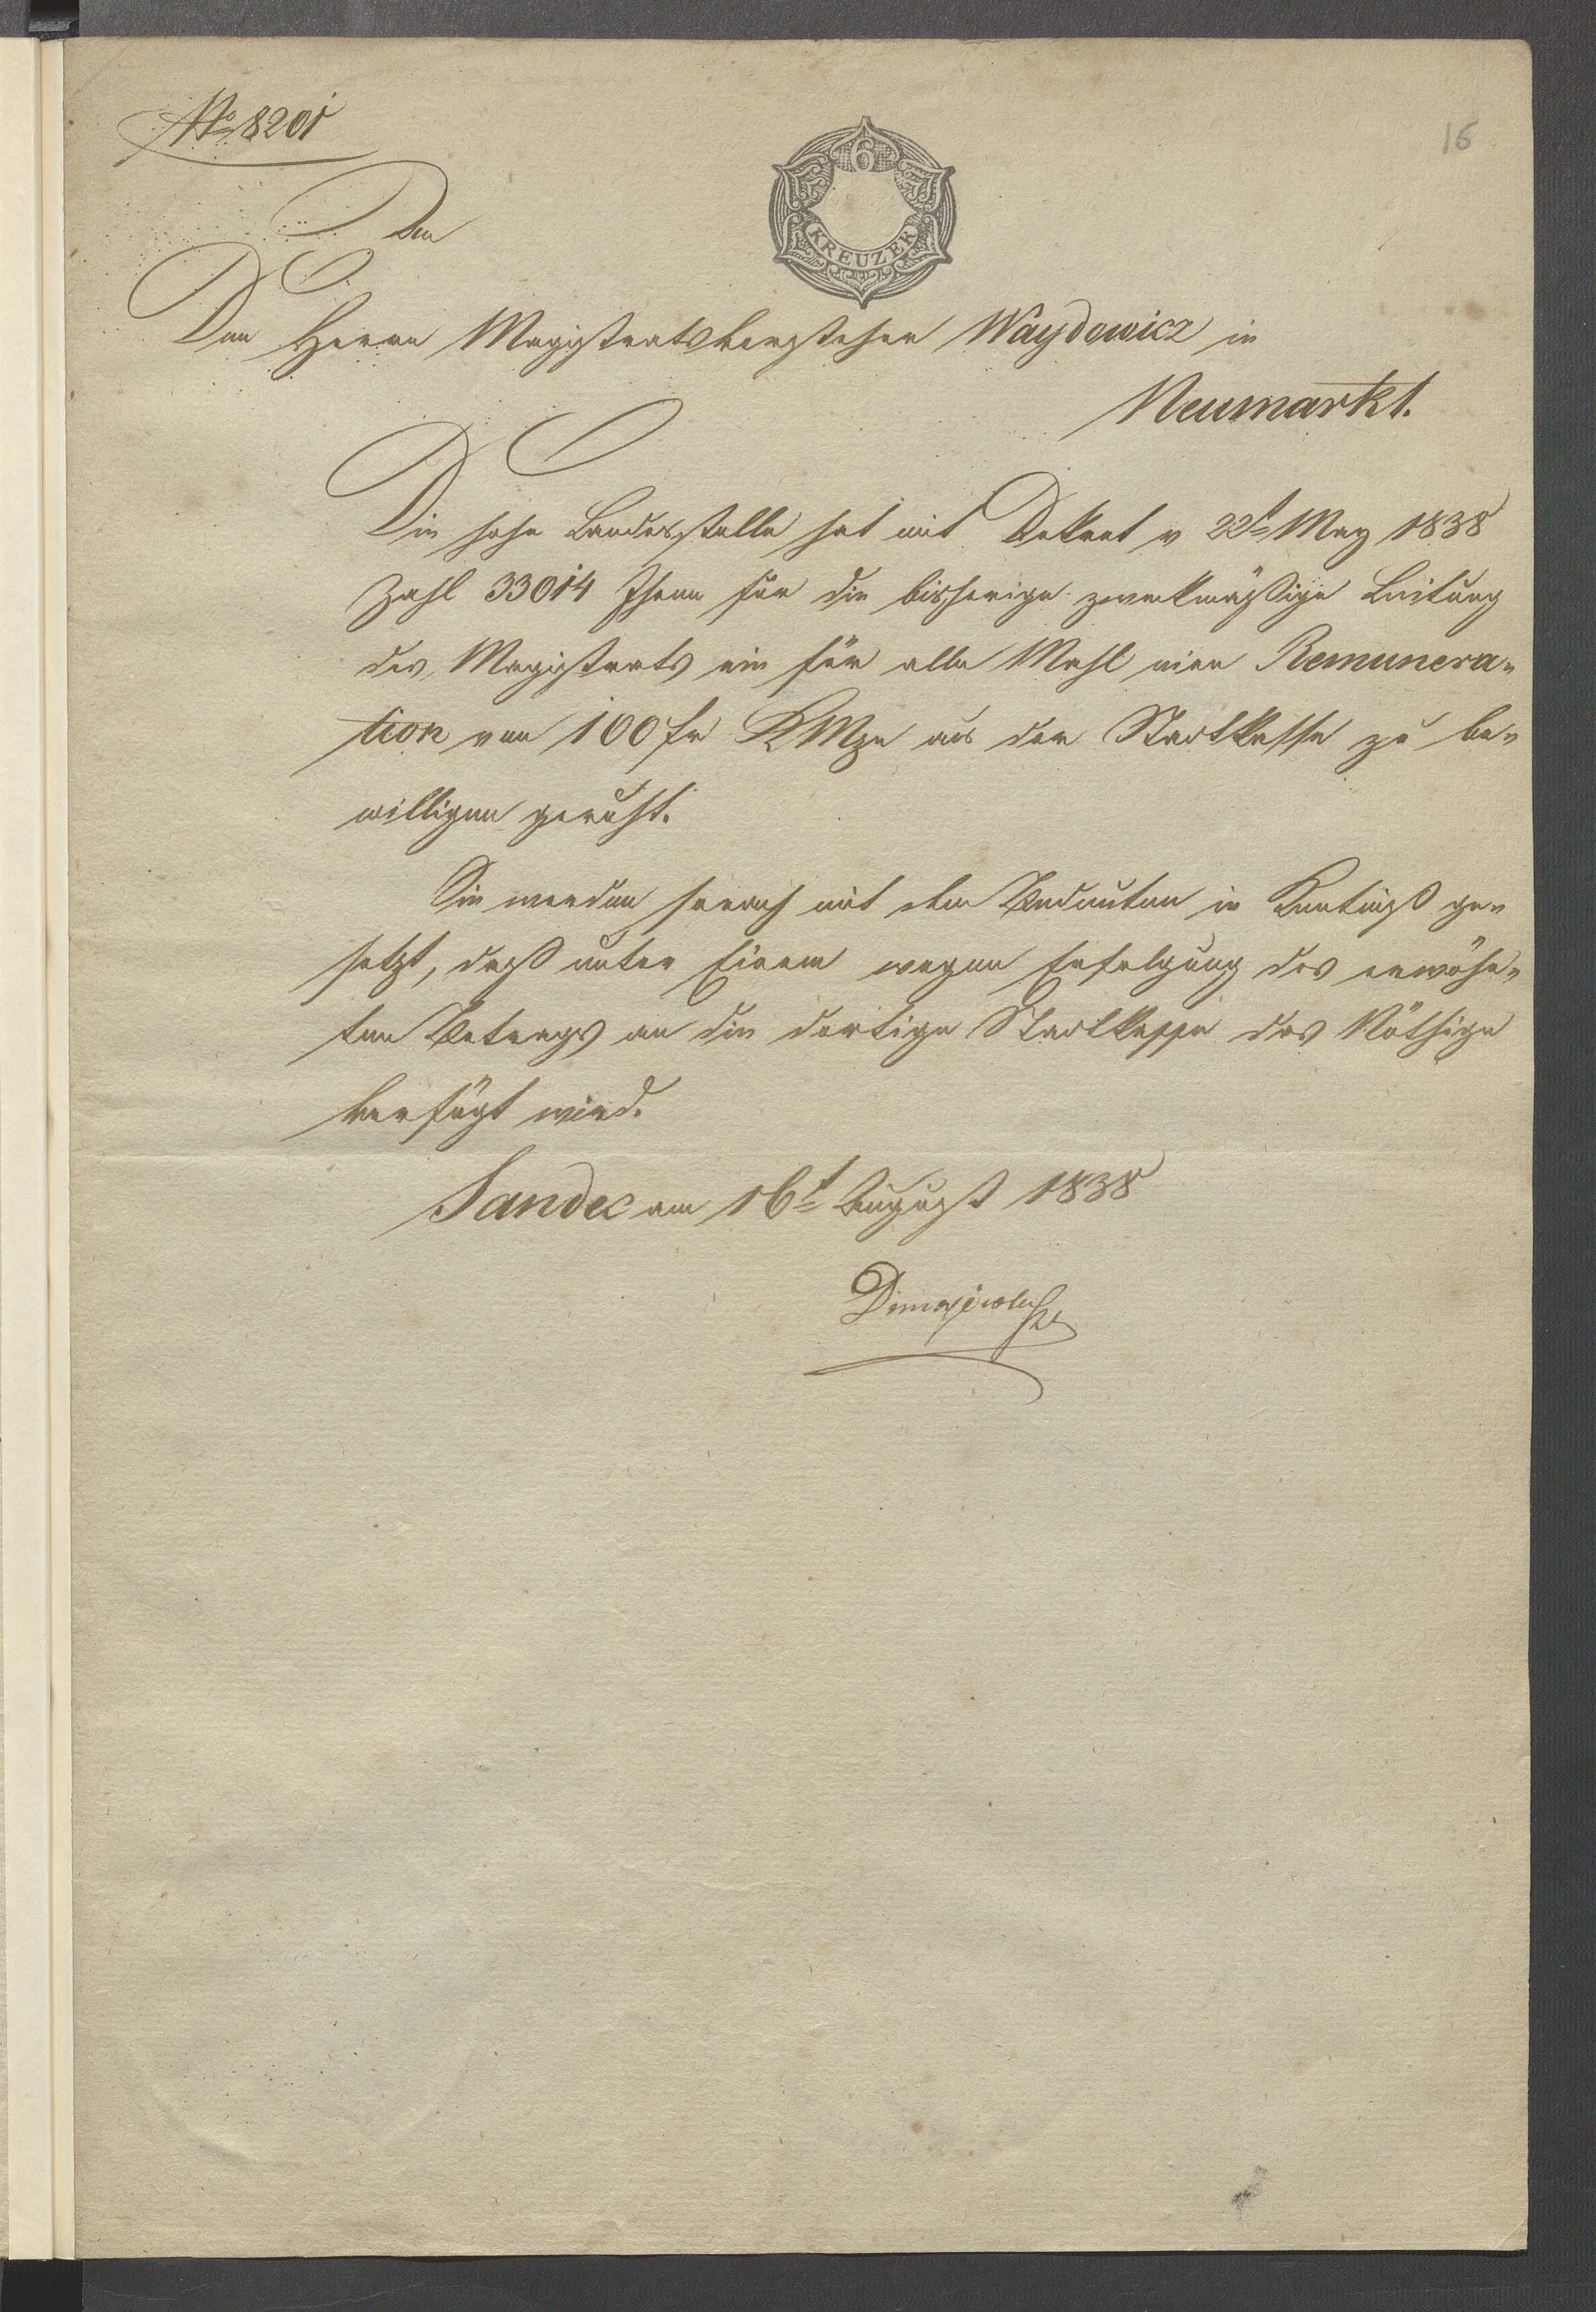 No 8201
16
6
KREUZER
Den Herrn Magistratsvorsteher Waydowicz in
Neumarkt.
Die hohe Landesstelle hat mit Dekret v 22t May 1838
Zahl 33014 Ihnen für die bisherige zwekmäßige Leitung
des Magistrats ein für alle Mahl eine Remunera-
tion von 100 fr KMze aus der Stadtkasse zu be-
willigen geruht.
Sie werden hievon mit dem Bedeuten in Kentniß ge-
setzt, daß unter Einem wegen Erfolgung des erwähn-
ten Betrags an die dortige Stadtkasse das Nöthige
verfügt wird.
Sandec am 16t August 1838